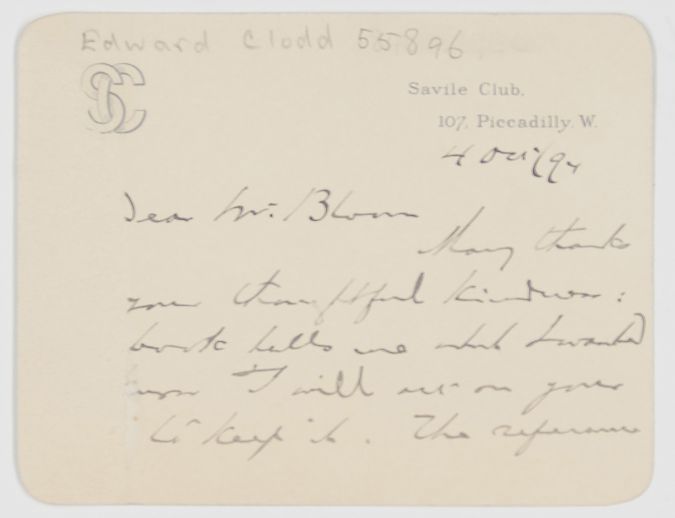 Edward Clodd 55896
SC
Savile Club,
107, Piccadilly, W.
4 Oct/94
Dear Mr. Bloom
Many thanks
your thoughtful kindness:
book tells me what I wanted
I will act on your
to keep it. The reference